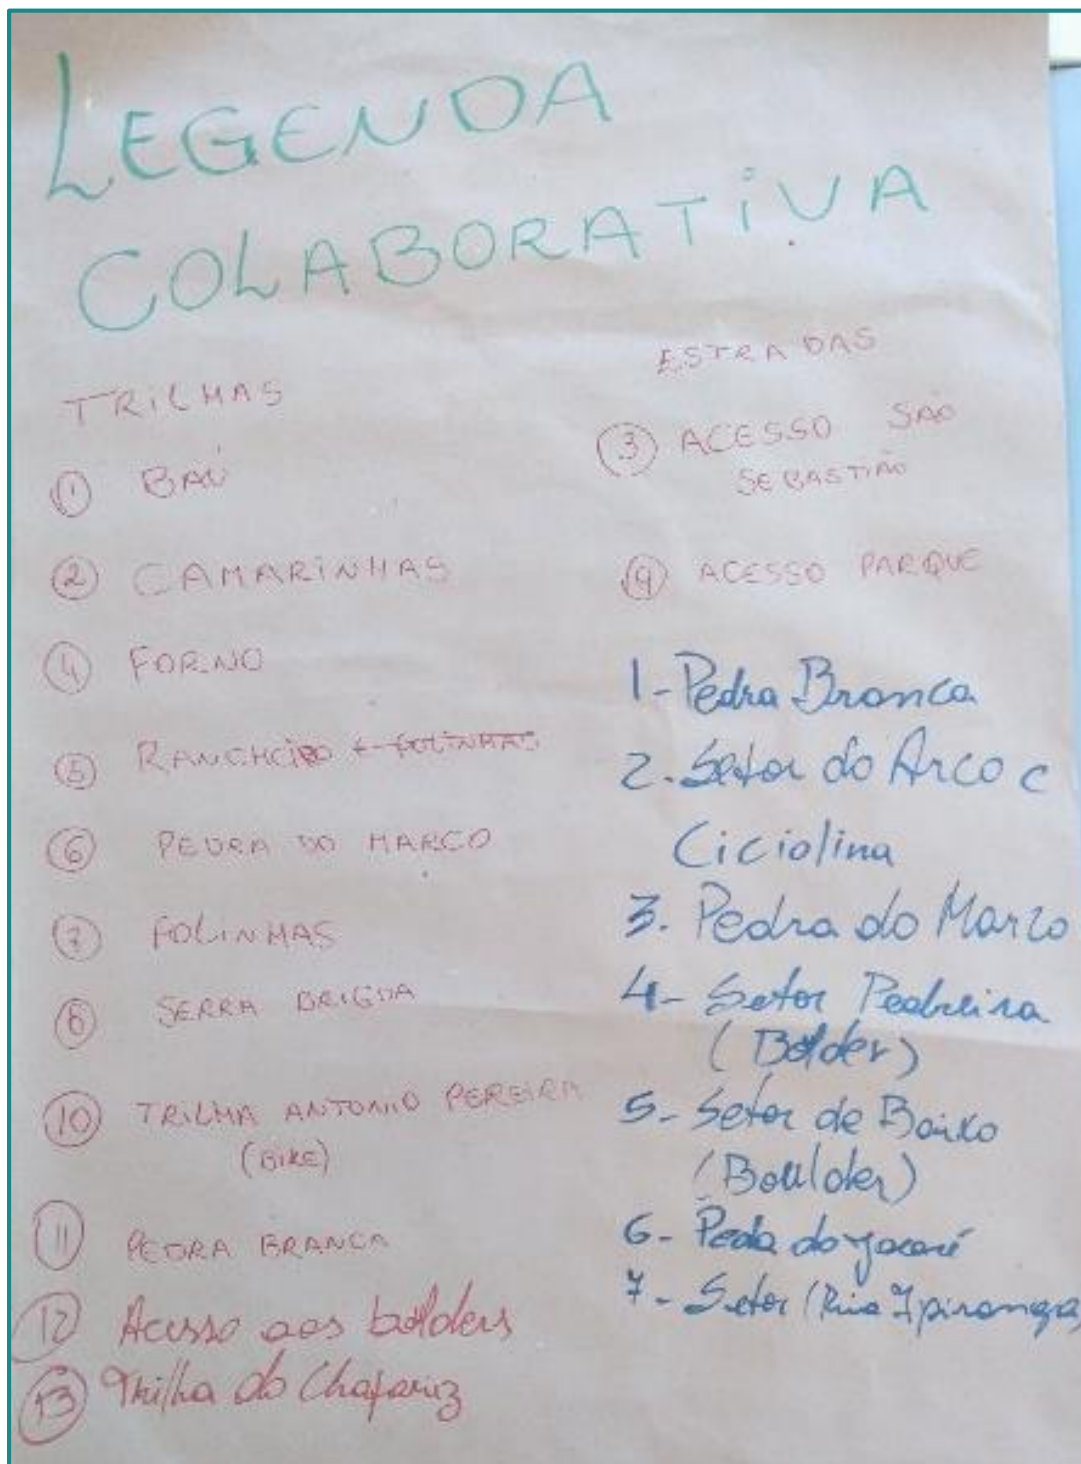 LEGENDA
COLABORATIVA
TRILHAS
① BAÚ
② CAMARINHAS
④ FORNO
⑤ RANCHEIRO
⑥ PEDRA DO MARCO
⑦ FOLINHAS
⑧ SERRA BRIGIDA
⑩ TRILHA ANTONIO PEREIRA
(BIKE)
⑪ PEDRA BRANCA
⑫ Acesso aos bolders
⑬ Trilha do Chafariz
ESTRADAS
③ ACESSO SÃO
SEBASTIÃO
⑨ ACESSO PARQUE
1-Pedra Branca
2. Setor do Arco e
Ciciolina
3. Pedra do Marco
4- Setor Pedreira
(Bolder)
5- Setor de Baixo
(Boulder)
6- Peda do Jacaré
7- Setor (Rua Ipiranga)